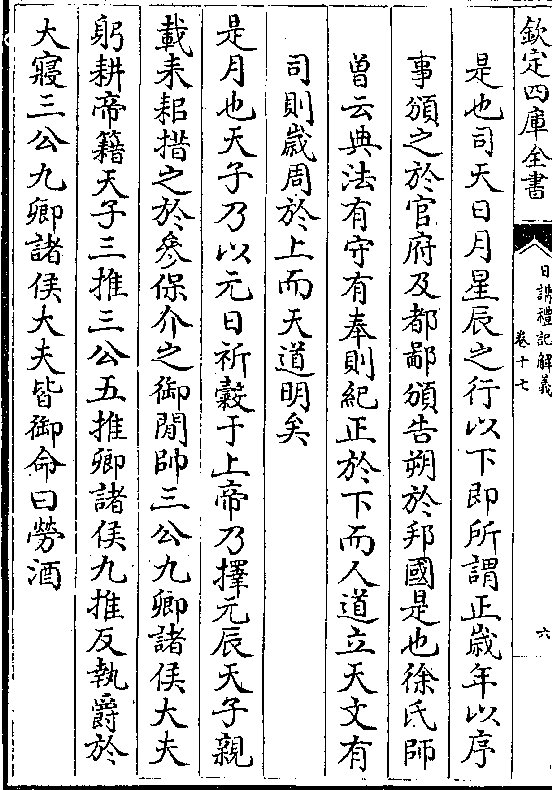 欽定四庫全書
日講禮記解義
卷十七
六
是也司天日月星辰之行以下即所謂正歲年以序
事頒之於官府及都鄙頒告朔於邦國是也徐氏師
曾云典法有守有奉則紀正於下而人道立天文有
司則歲周於上而天道明矣
是月也天子乃以元日祈穀于上帝乃擇元辰天子親
載耒耜措之於參保介之御閒帥三公九卿諸侯大夫
躬耕帝籍天子三推三公五推卿諸侯九推反執爵於
大寢三公九卿諸侯大夫皆御命曰勞酒